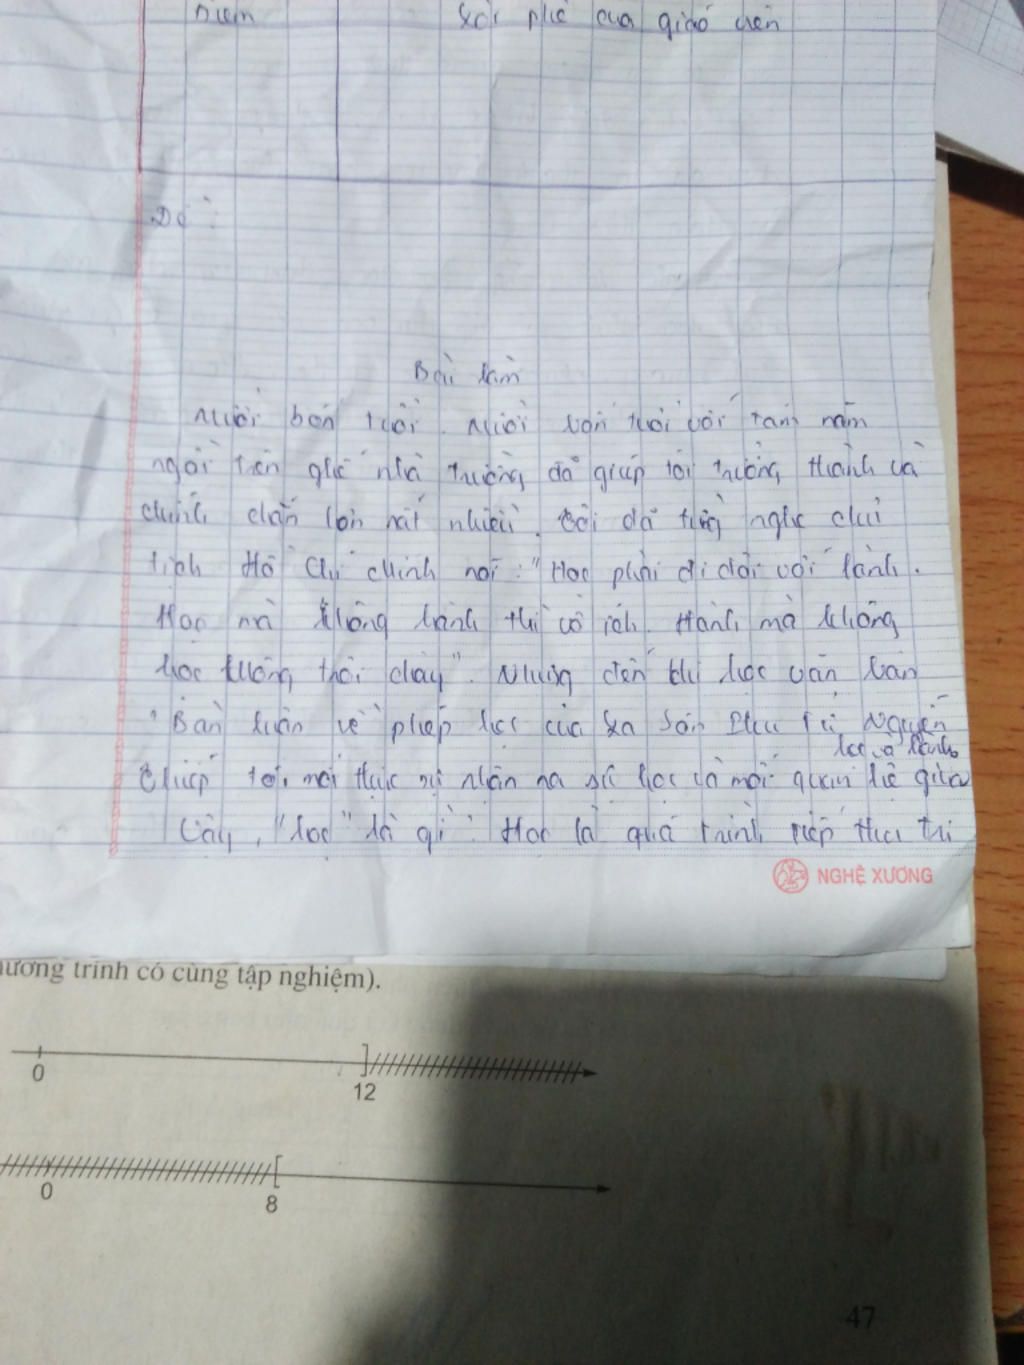 Điểm Lời phê của giáo viên
Đề:
Bài làm
Mười bốn tuổi. Mười bốn tuổi với tám năm
ngồi trên ghế nhà trường đã giúp tôi trưởng thành và
chính chắn hơn rất nhiều. Tôi đã từng nghe chủ
tịch Hồ Chí Minh nói: "Học phải đi đôi với hành.
Học mà không hành thì vô ích. Hành mà không
học không trôi chảy". Nhưng đến khi học văn bản
"Bàn luận về phép học của La Sơn Phu Tử Nguyễn
Thiếp tôi mới thực sự nhận ra sự học và mối quan hệ giữa học và hành.
Vậy, "học" là gì? Học là quá trình tiếp thu tri
NGHỆ XƯƠNG
ương trình có cùng tập nghiệm).
0
12
0
8
47